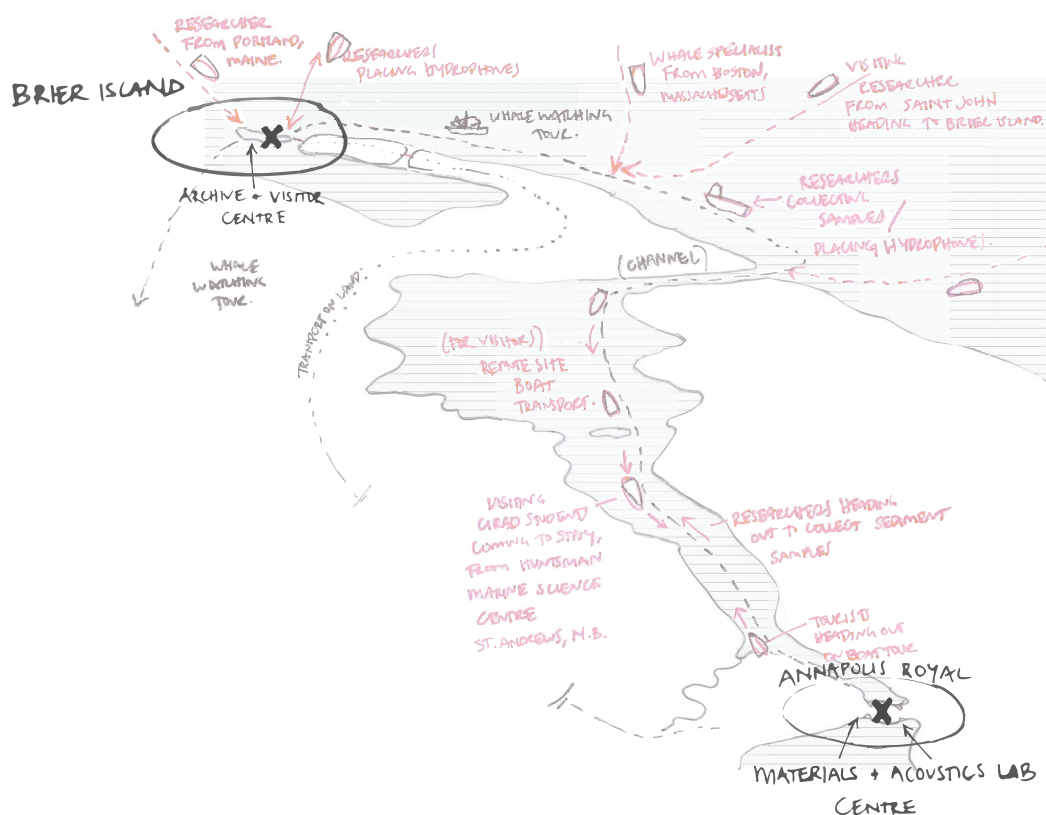 RESEARCHER
FROM PORTLAND,
MAINE.
RESEARCHERS
PLACING HYDROPHONES
BRIER ISLAND
ARCHIVE + VISITOR
CENTRE
WHALE
WATCHING
TOUR.
WHALE WATCHING
TOUR.
WHALE SPECIALIST
FROM BOSTON,
MASSACHUSETTS
VISITING
RESEARCHER
FROM SAINT JOHN
HEADING TO BRIER ISLAND.
RESEARCHERS
COLLECTING
SAMPLES/
PLACING HYDROPHONES.
(CHANNEL)
TRANSPORT ON LAND.
(FOR VISITORS)
REMOTE SITE
BOAT
TRANSPORT.
VISITING
GRAD STUDENT
COMING TO STAY,
FROM HUNTSMAN
MARINE SCIENCE
CENTRE
ST. ANDREWS, N.B.
RESEARCHERS HEADING
OUT TO COLLECT SEDIMENT
SAMPLES
TOURISTS
HEADING OUT
ON BOAT TOUR
ANNAPOLIS ROYAL
MATERIALS + ACOUSTICS LAB
CENTRE